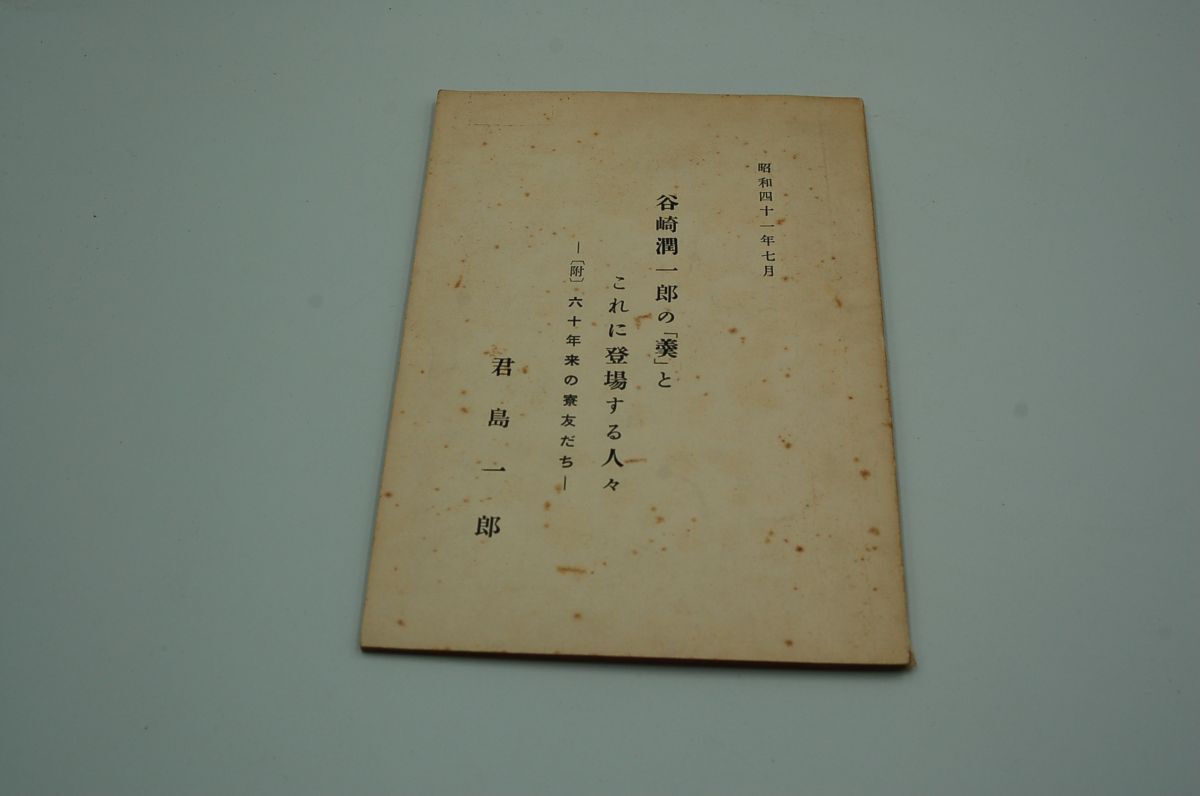 昭和四十一年七月
谷崎潤一郎の「羹」と
これに登場する人々
―〔附〕六十年来の寮友だち―
君島一郎